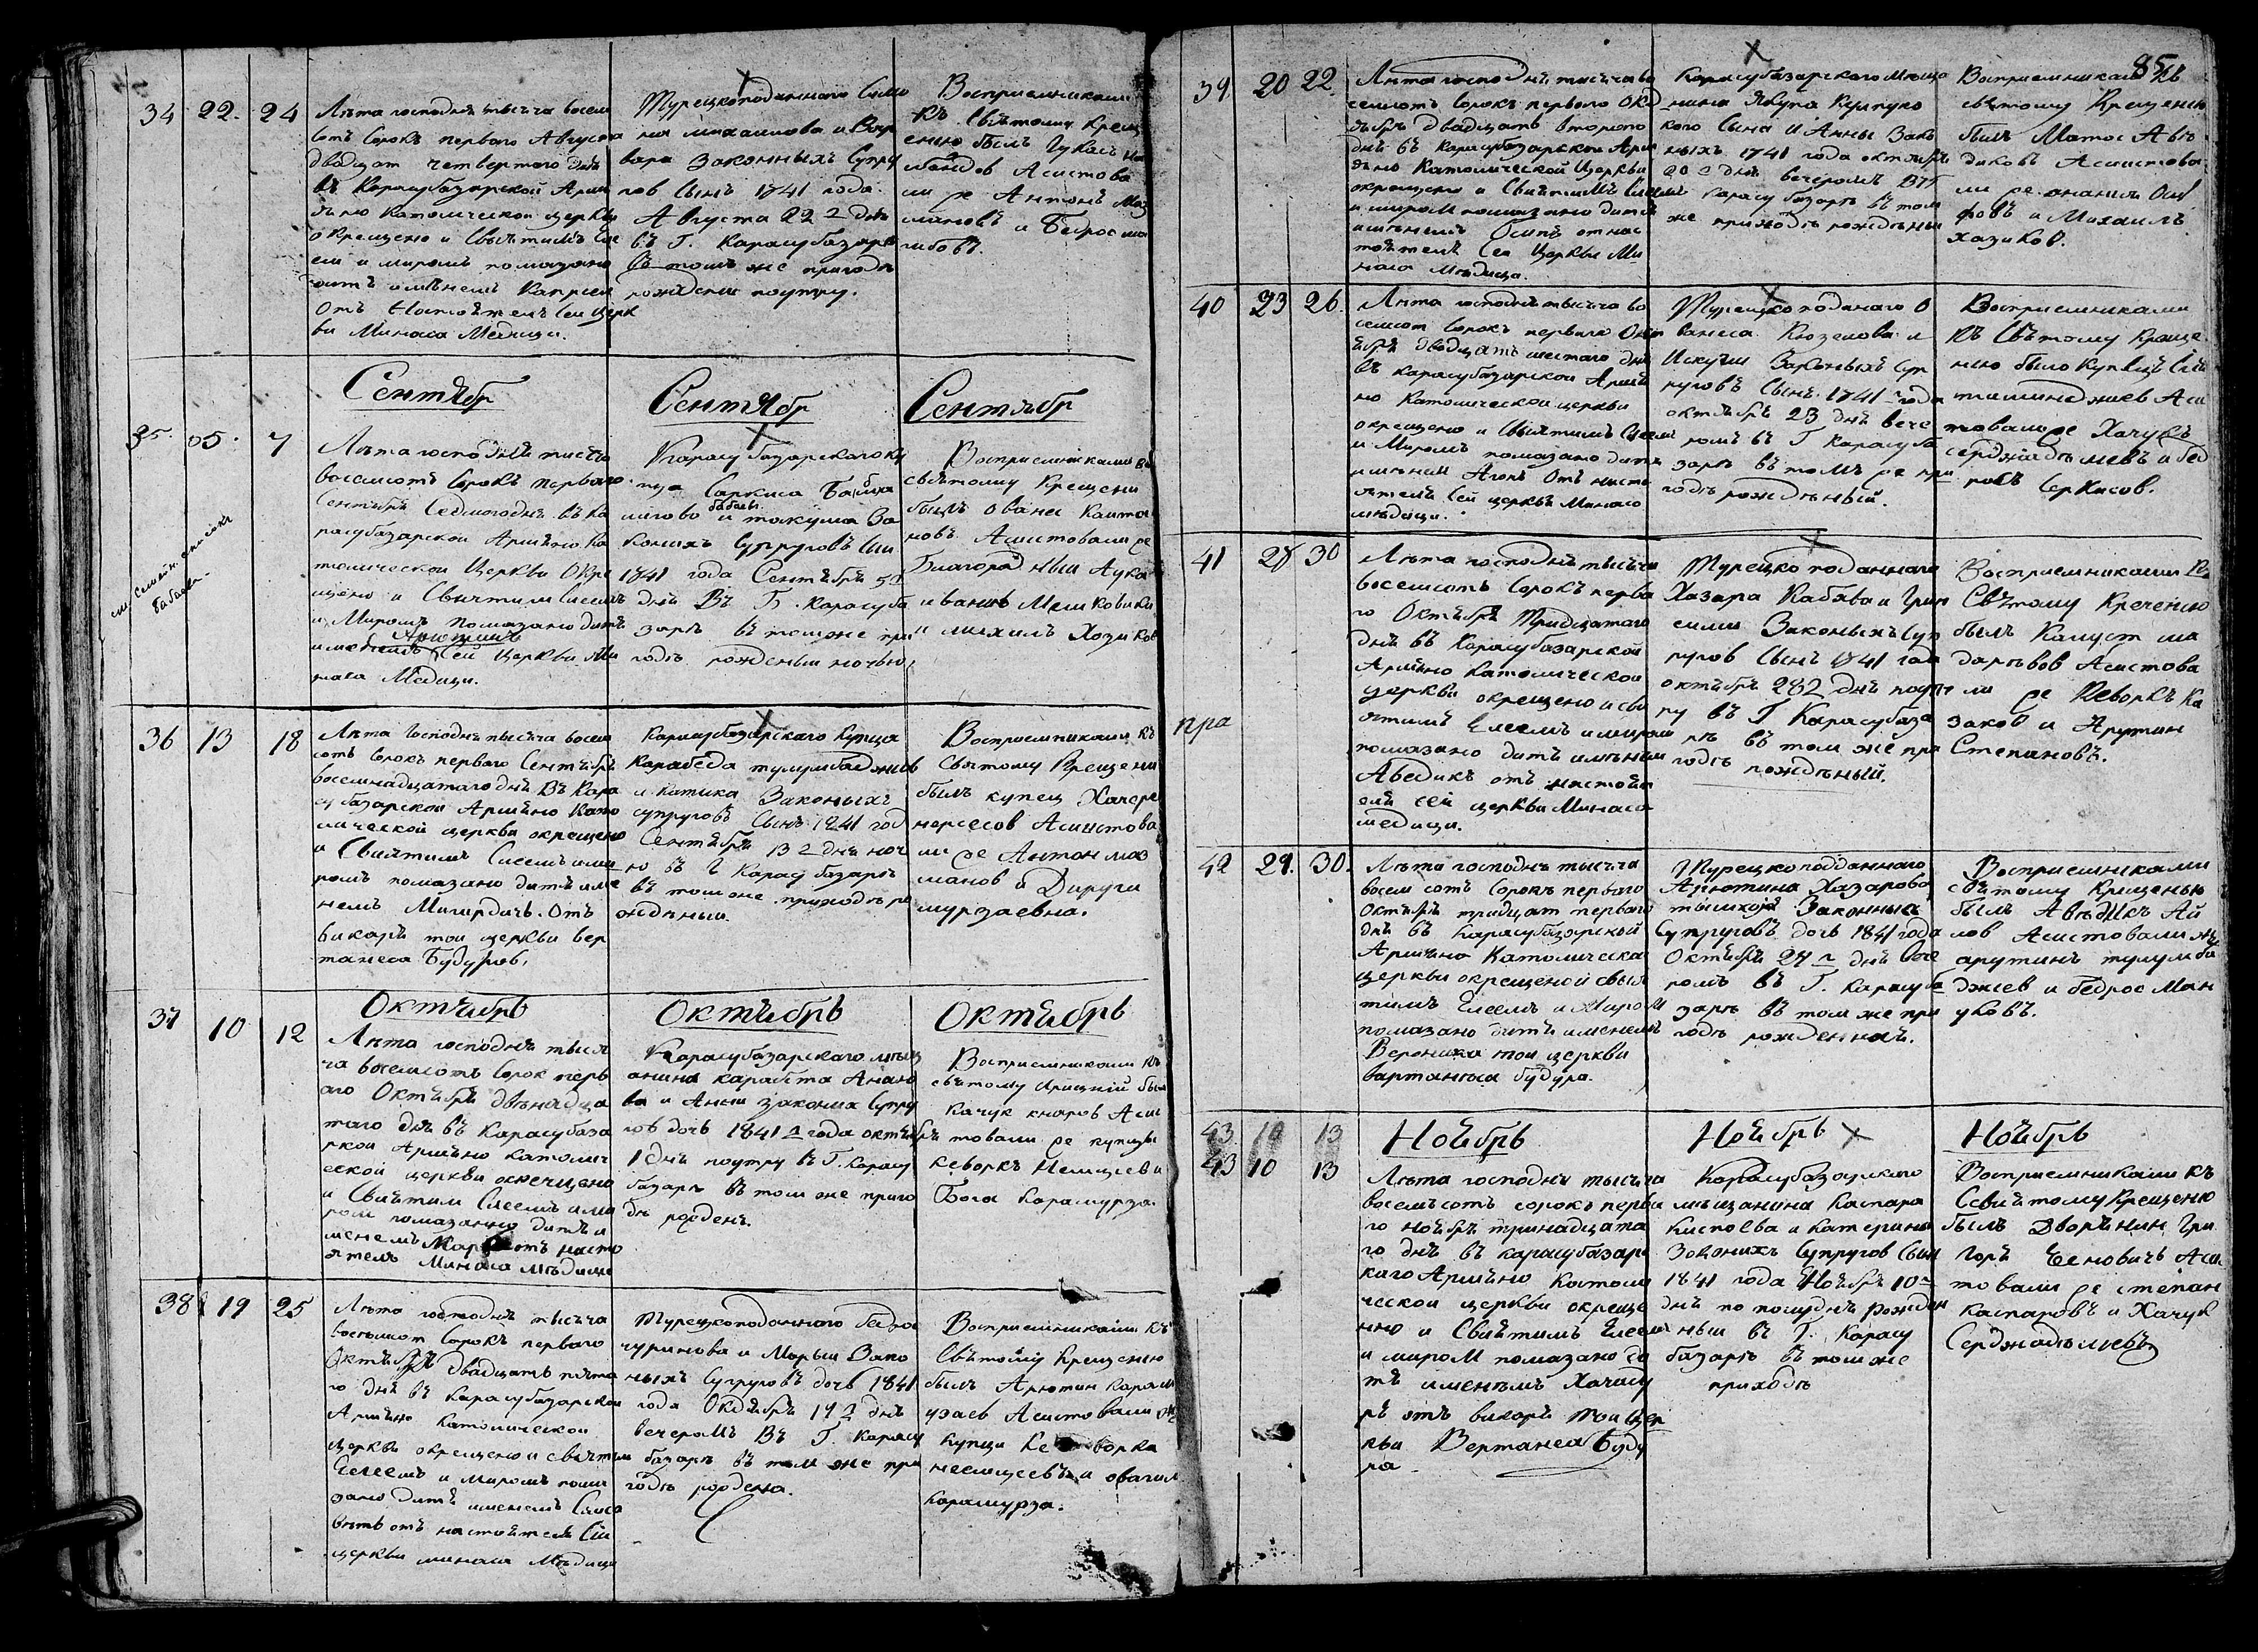 34 22. 24
Лѣта господня тысяча восем
сотъ Сорокъ перваго Августа
двадцат четвертаго дня
въ Карасубазарской Армя
но Католической церкви
окрещено и Святимъ Еле
ем и миромъ помазано
дитъ имѣнемъ Каприел
Отъ Настоятеля сеи церк
ви Минаса Медици.
Турецкоподаннаго
михаилова и Вар
вара законныхъ Супру
гов Сынъ 1841 года.
Августа 22 2 дня
въ Г. Карасубазарѣ
въ томъ же приходѣ
рождени поутру.
Восприемниками
къ Святому Крещ
ению былъ Гукасъ
Асистова
ли же Антонъ Маз
мановъ и Бедрос
Сентябр
Сентябр
Сентябр
35. 05. 7
Лѣта господня тисяча
восемсотъ Сорокъ перваго
Сентября Седмого дня въ Ка
расубазарской Армяно Ка
толической Церкви Окре
щено и Святимъ Елеемъ
и Миромъ помазано дитъ
Арютинъ
именемъ Сей Церкви Ми
наса Медици.
Карасубазарского ку
пца Саркиса
бабаевъ
и За
коннихъ Супруговъ Син
1841 года Сентября 5
дня Въ Г. Карасуба
зарѣ въ томже при
ходѣ рожденыи ночью,
Восприемниками
святому Крещени
былъ Ованес
новъ Асистовали же
Благородныи Лука
ивановъ
и михаилъ Хозиков
см. семейн. списокъ
Бабаева
36 13 18
Лѣта Господня тысяча восем
сотъ Сорокъ перваго Сентября
восемнадцатаго дня Въ Кара
субазарской Армяно Като
лической церкви окрещено
и Святимъ Елеемъ и ми
ромъ помазано дитѣ име
немъ Мигирдичъ. Отъ
викаря тои церкви Вер
танеса Будуров,
Карасубазарского Купца
Карабеда тулумбаджиев
и катика Законыхъ
супруговъ Сынъ 1841 год
Сентября 13 2 дня ноч
ю въ Г Карасубазарѣ
въ томже приходѣ ро
жденыи.
Восприемниками къ
Святому Крещени
былъ купец Хачере
нерсесов Асистова
ли же Антон маз
манов и Дируги
мурзаевна.
Октябрь
Октябрь
Октябрь
37 10 12
Лѣта господня тыся
ча восемсотъ Сорок перв
аго Октября двѣнадца
таго дня въ Карасубаза
рской Армяно католич
еской церкви окрещено
и Святим Елеемъ и ми
ром помазанно дитѣ и
менемъ отъ насто
ятеля Минаса мѣдици
Карасубазарскаго мѣщ
анина карабета Анан
ва и Анни законих Супру
гов дочь 1841 года октября
1 дня поутру въ Г. Карасу
базарѣ въ том же прихо
дѣ рожденъ.
Восприемниками къ
святому был
качук Аси
стовали же купцы
кеворкъ Немцев и
Бога Карамурза.
38 19 25
Лѣта господня тысяча
восемсот Сорокъ перваго
Октября двадцать пята
го дня въ Карасубазарской
Армяно католической
Церкви окрещено и святым
Елеемъ и миромъ пома
зано дитѣ именемъ
отъ настоятеля Сии
церкви минаса Мѣдици
Турецкоподанного бедрос
чуринова и Марьи Зако
ныхъ Супруговъ дочь 1841
года Октября 19 2 дня
вечеромъ Въ Г. Карасу
базарѣ въ том же при
ходѣ рождена.
Восприемниками къ
Святому Крещению
былъ Арютин карам
узаев Асистовали же
купци Кеворка
немцевъ и оваким
карамурза.
85
39. 20 22.
Лѣта господня тысяча во
семсотъ Сорокъ перваго Окт
ября двадцать второго
дня въ Карасубазарской Арм
яно Католической Церкви
окрещено и Святимъ Елеемъ
и миром помазано дитя
именемъ Осипъ от нас
тоятеля Сеи Церкви Ми
наса Мѣдици.
Карасубазарского Мѣща
нина Якупа
кого Сына и Анны Зако
ныхъ 1841 года октября
20 2 дня вечеромъ Въ Г
Карасубазарѣ въ том
же приходѣ рожденыи
Восприемниками къ
святому Крещению
былъ Матос Авѣ
диковъ Асистова
ли же онания
фовъ и Михаилъ
хазиков.
40 23 26.
Лѣта господня тысяча во
семсот Сорокъ перваго Окт
ября двадцать шестаго дня
въ Карасубазарской Армя
но Католической церкви
окрещено и Святимъ Елеемъ
и Миромъ помазано дитя
именем Агопъ Отъ насто
ятеля Сей церкви Минаса
мѣдици.
Турецкоподанаго О
ванеса Кюзелова и
Искуги Законыхъ Суп
руговъ Сынъ 1841 года
октября 23 дня вече
ромъ въ Г Карасуба
зарѣ въ томъ же при
ходѣ рожденый.
Восприемниками
Къ Святому Креще
нию было Купецъ
Аси
стовали же Хачукъ
серджадѣлиевъ и бед
росъ Серкисов.
41 28 30
Лѣта господня тысяча
восемсотъ Сорокъ перва
го Октября Тридцатаго
дня въ Карасубазарской
Армяно Католической
церкви окрещено и свя
ятимъ Елеемъ и миром
помазано дитъ именем
Абедикъ отъ настоят
еля сей церкви Минаса
медици.
пра
Турецкоподаннаго
Хазара Кабява и
Законыхъ Суп
ругов Сынъ 1841 года
октября 28 2 дня поут
ру въ Г Карасубаза
рѣ въ том же при
ходѣ рожденый.
Восприемниками Къ
Святому Кречению
былъ Калуст ма
Асистова
ли же Кеворкъ Ка
заков и Арутин
Степановъ.
42 29. 30.
Лѣта господня тысяча
восем сотъ Сорокъ перваго
Октября тридцат перваго
дня въ Карасубазарской
Армяно Католическа
церкви окрещеной свя
тимъ Елеемъ и Миром
помазано дитя именемъ
Вероника тои церкви
вартанеса будура.
Турецкоподданнаго
Арютина Хазарова
Законных
Супруговъ дочь 1841 года
Октября 29 2 дня вече
ромъ въ Г. Карасуба
зарѣ въ том же при
ходѣ рожденная.
Восприемниками
святому Крещенью
былъ Авѣдикъ Ай
лов Асистовали же
арутинъ тулумба
джиев и бедрос Ман
уковъ.
43 10 13
43 10 13
Ноябрь
Ноябрь
Ноябрь
Лѣта господня тысяча
восемъсотъ сорокъ перва
го ноября тринадцата
го дня въ карасубазарс
каго Армяно Католи
ческой церкви окреще
нно и Святимъ Елеем
и миром помазано ди
тѣ именемъ Хачату
ръ отъ викаря тои цер
кви Вертанеса Буду
ра
Карасубазарского
мѣщанина Каспара
Киспоева и Катерина
Законихъ Супругов Сын
1841 года Ноября 10
дня по полуднѣ рожден
ныи въ Г. Карасу
базарѣ въ том же
приходѣ
Восприемниками къ
Святому Крещению
былъ Дворянин Гри
горъ Аси
стовали же степан
каспаровъ и Хачук
Серджадѣлиевъ